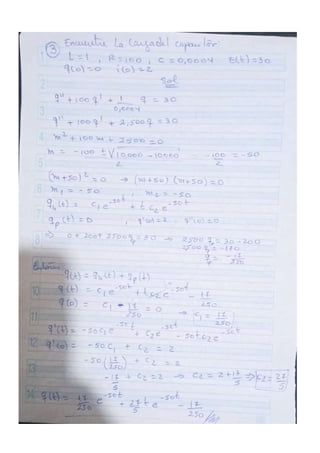 3 Encuentre La Carga del capacitor
1 L=1 , R=100 , C=0,0004 E(t)=30
q(0)=0 i(0)=2
2 Sol
q'' + 100q' + 1/0,0004 q = 30
3 q'' + 100q' + 2,500q = 30
4 m² + 100m + 2500 = 0
m = -100 ± √10,000 - 10000 / 2 -100/2 = -50
5
(m+50)² = 0 → (m+50)(m+50) = 0
6 m₁ = -50 , m₂ = -50
7 qₕ(t) = c₁e^-50t + t c₂e^-50t
qₚ(t) = D q'(t)=2 q''(t)=0
8 ⇒ 0 + 200 + 2500q = 30 → 2500 q = 30 - 200
2500 q = -170
q = -17/250
Entonces q(t) = qₕ(t) + qₚ(t)
10 q(t) = c₁e^-50t + t c₂e^-50t - 17/250
q(0) = c₁ - 17/250 = 0 → c₁ = 17/250
11
q'(t) = -50c₁e^-50t + c₂e^-50t - 50t c₂e^-50t
12 q'(0) = -50c₁ + c₂ = 2
13 -50(17/250) + c₂ = 2
-17/5 + c₂ = 2 → c₂ = 2 + 17/5 ⇒ c₂ = 27/5
14 q(t) = 17/250 e^-50t + 27/5 t e^-50t - 17/250